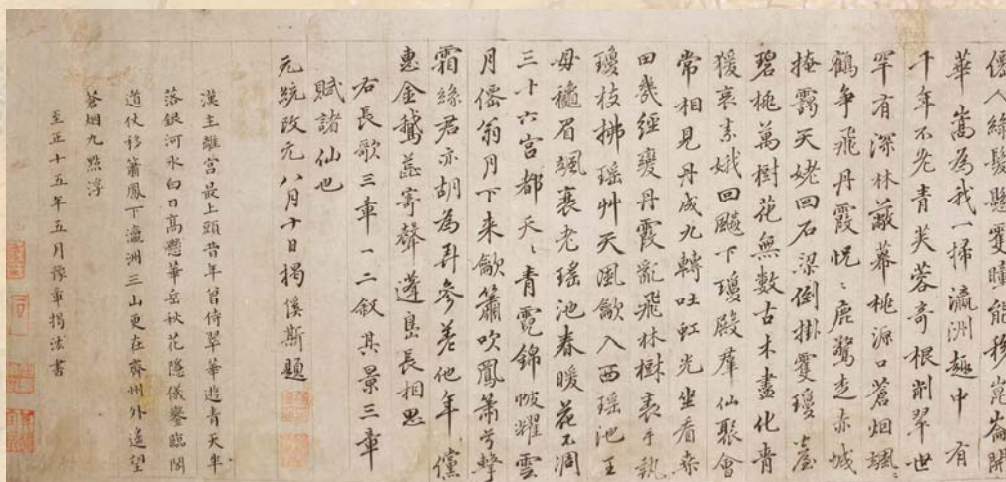 僊人綠髮懸雙瞳能移崑崙開
華嵩為我一掃瀛洲趣中有
千年不老青芙蓉奇根削翠世
罕有深林蔽幕桃源口蒼烟颯〻
鶴争飛丹霞怳〻鹿驚走赤城
掩靄天姥回石梁倒掛雙瓊臺
碧桃萬樹花無數古木盡化青
猨哀素娥回飈下瓊殿羣仙聚會
常相見丹成九轉吐虹光坐看桑
田幾經變丹霞亂飛林樾表手執
瓊枝拂瑶艸天風歙入西瑶池王
母眉颯衰老瑶池春暖花不凋
三十六宮都夭〻青霓錦帔耀雲
月儒翁月下来歙簫吹鳳簫兮擊
霜絲君亦胡為弄參差他年儻
惠金鵝蕊寄聲蓬島長相思
右長歌三章一二叙其景三章
賦諸仙也
元統改元八月十日揭傒斯題
漢主離宮最上頭昔年曾侍翠華遊青天半
落銀河水白日高懸華岳秋花隱儀鑾臨閣
道仗移簫鳳下瀛洲三山更在齊州外遥望
蒼烟九點浮
至正十五年五月豫章揭汯書